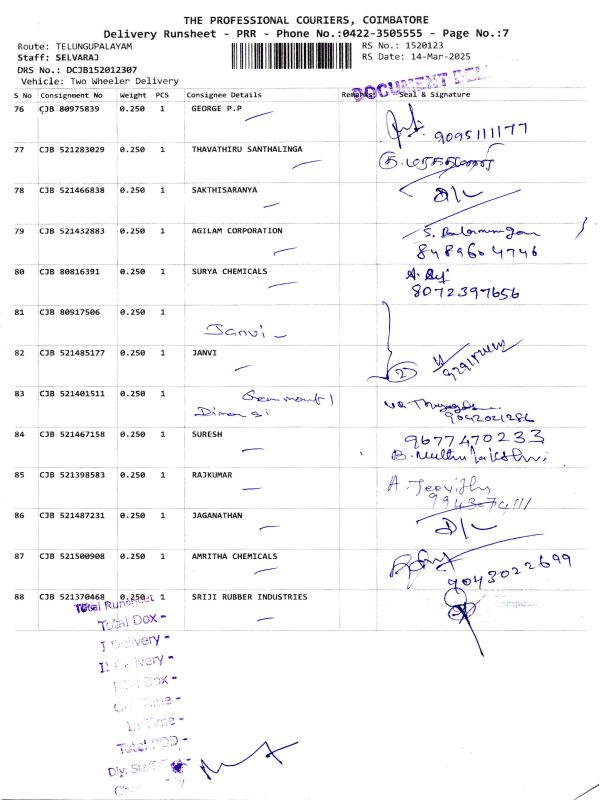 THE PROFESSIONAL COURIERS, COIMBATORE
Delivery Runsheet - PRR - Phone No.:0422-3505555 - Page No.:7
Route: TELUNGUPALAYAM RS No.: 1520123
Staff: SELVARAJ RS Date: 14-Mar-2025
DRS No.: DCJB152012307
Vehicle: Two Wheeler Delivery
DOCUMENT
S No Consignment No Weight PCS Consignee Details Remarks Seal & Signature
76 CJB 80975839 0.250 1 GEORGE P.P
9095111177
77 CJB 521283029 0.250 1 THAVATHIRU SANTHALINGA
78 CJB 521466838 0.250 1 SAKTHISARANYA D/L
79 CJB 521432883 0.250 1 AGILAM CORPORATION
8489604746
80 CJB 80816391 0.250 1 SURYA CHEMICALS
8072397656
81 CJB 80917506 0.250 1
Janvi
82 CJB 521485177 0.250 1 JANVI
2
83 CJB 521401511 0.250 1
9042021286
84 CJB 521467158 0.250 1 SURESH 9677470233
85 CJB 521398583 0.250 1 RAJKUMAR
9943074111
86 CJB 521487231 0.250 1 JAGANATHAN D/L
87 CJB 521500908 0.250 1 AMRITHA CHEMICALS
9043022699
88 CJB 521370468 0.250 1 SRIJI RUBBER INDUSTRIES
Total Runsheet
Total Dox -
I Delivery -
II Delivery -
Dox -
Time -
In Time -
Total POD -
Dly. Staff